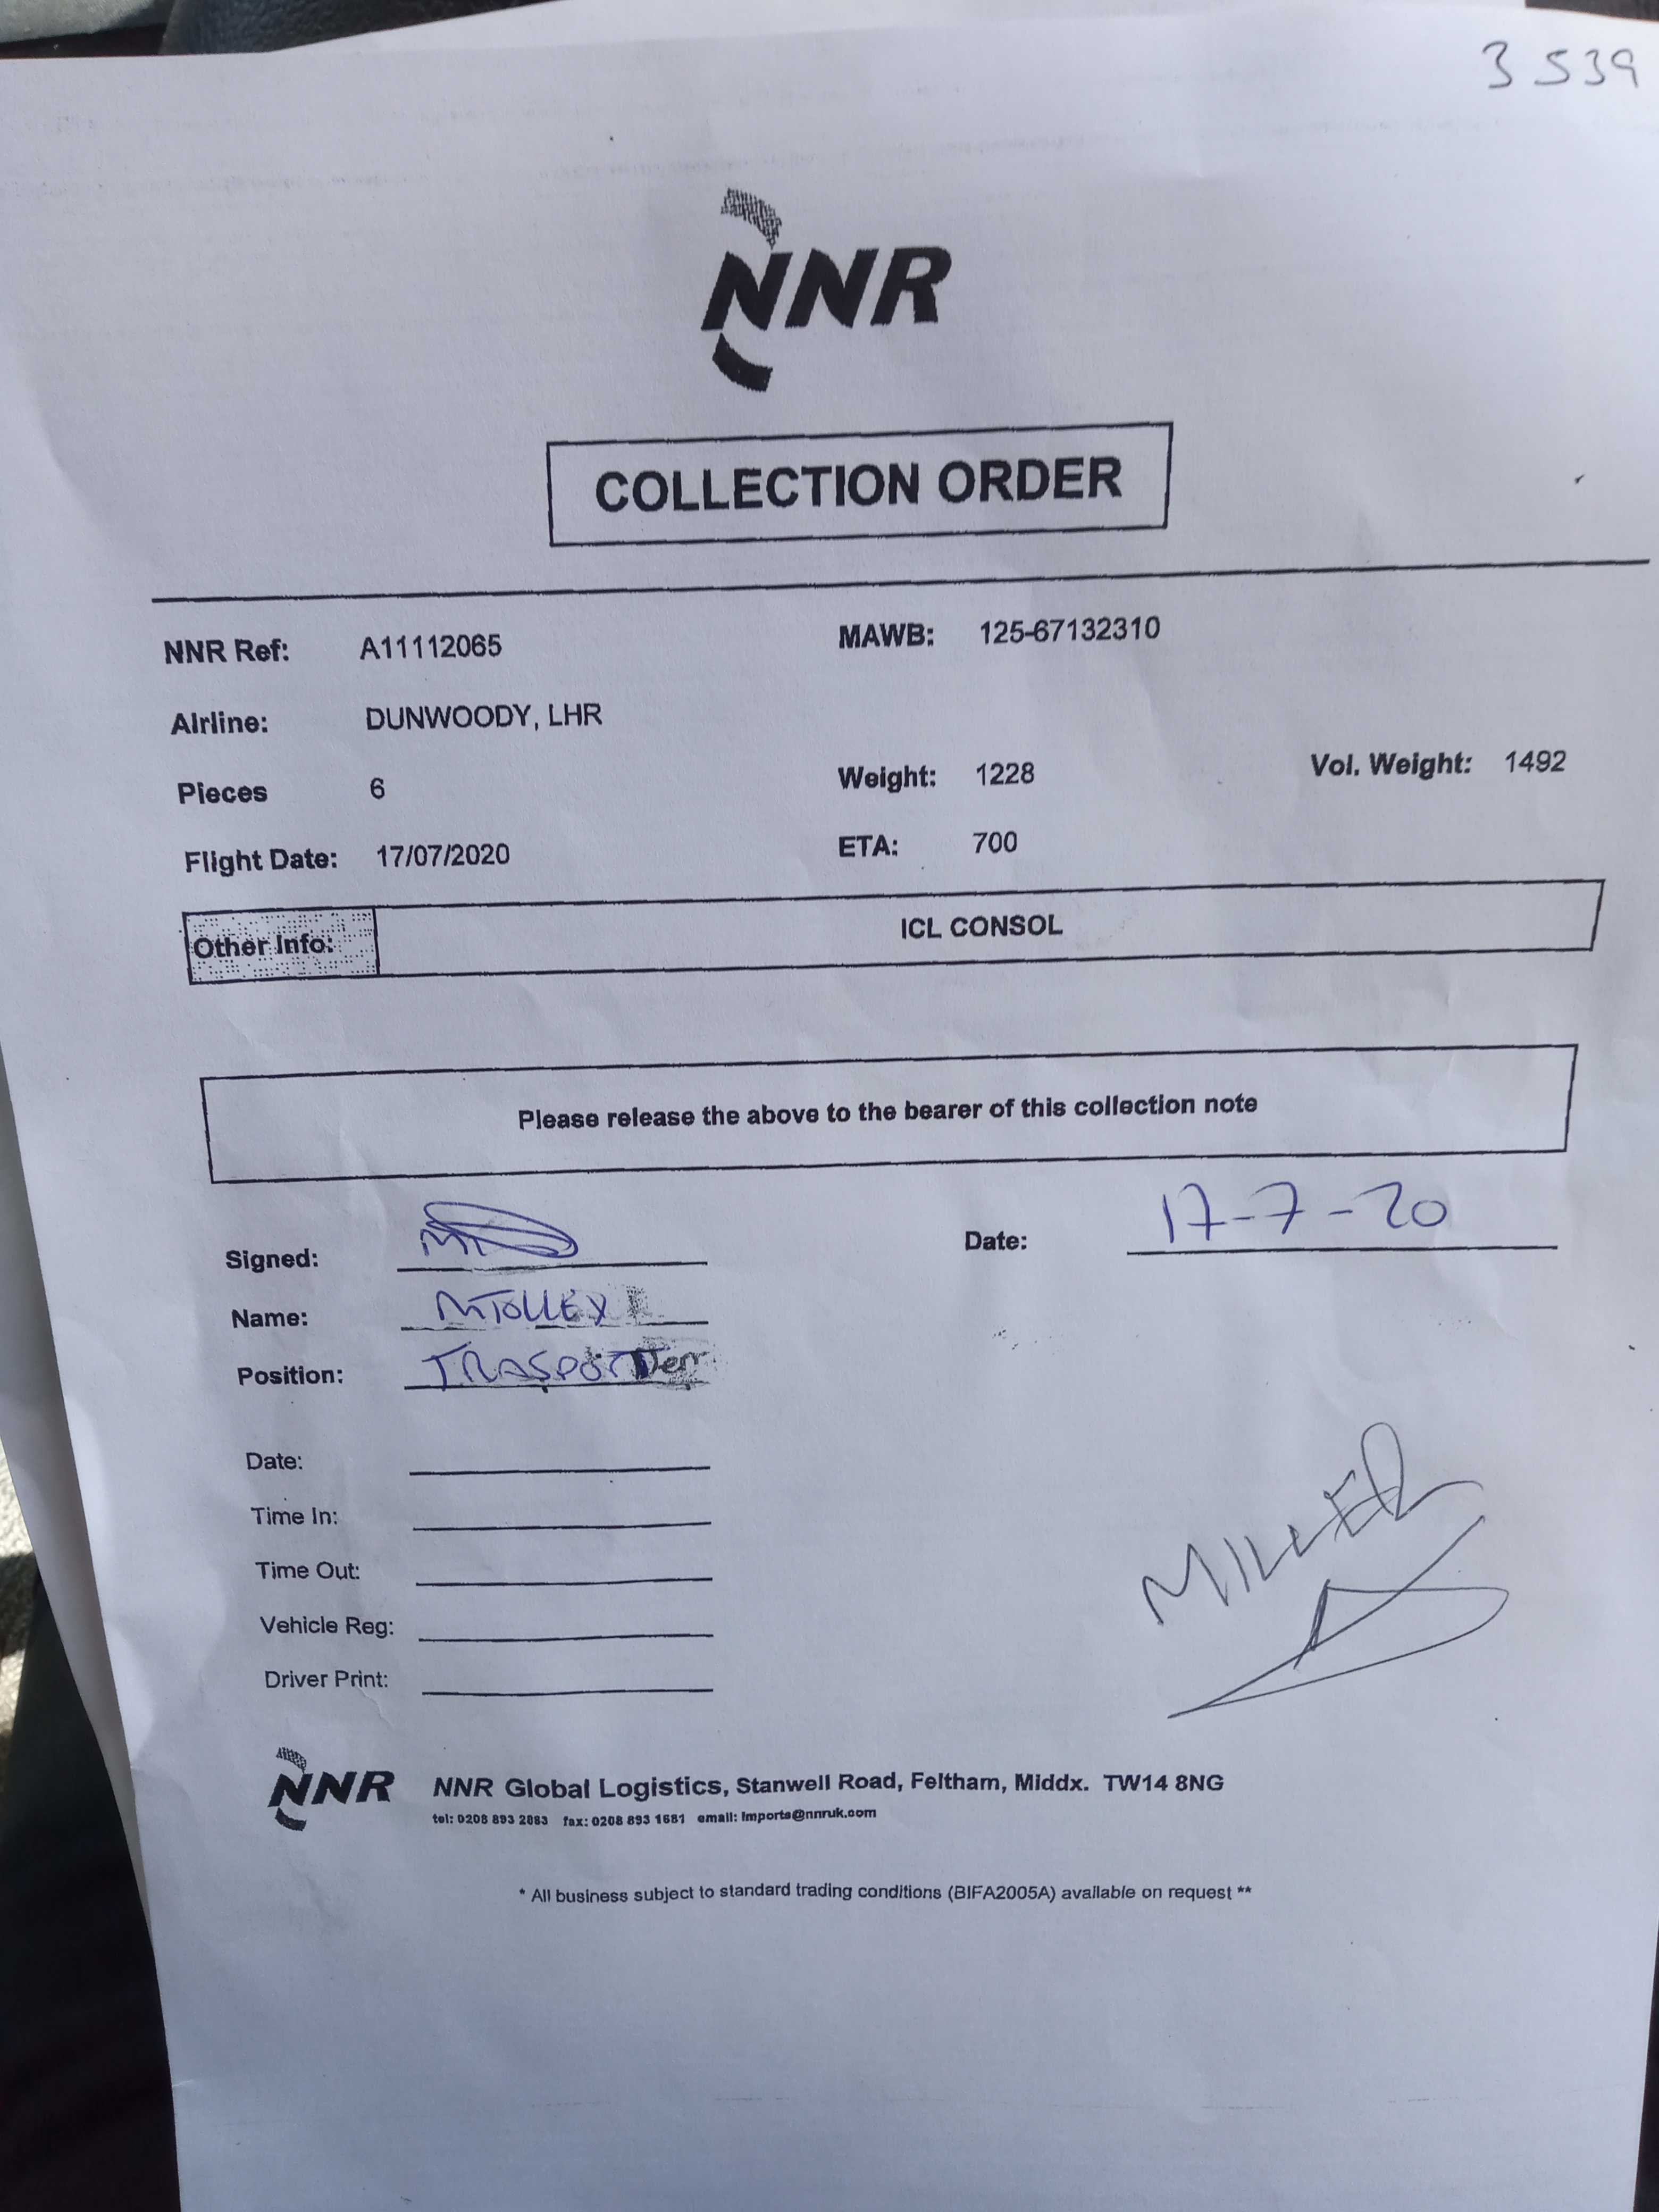 3 539
NNR
COLLECTION ORDER
NNR Ref: A11112065 MAWB: 125-67132310
Airline: DUNWOODY, LHR
Pieces 6 Weight: 1228 Vol. Weight: 1492
Flight Date: 17/07/2020 ETA: 700
Other Info: ICL CONSOL
Please release the above to the bearer of this collection note
Signed: Date: 17-7-20
Name:
Position:
Date:
Time In:
Time Out:
Vehicle Reg:
Driver Print:
MILLER
NNR NNR Global Logistics, Stanwell Road, Feltham, Middx. TW14 8NG
tel: 0208 893 2883 fax: 0208 893 1681 email: Imports@nnruk.com
* All business subject to standard trading conditions (BIFA2005A) available on request **